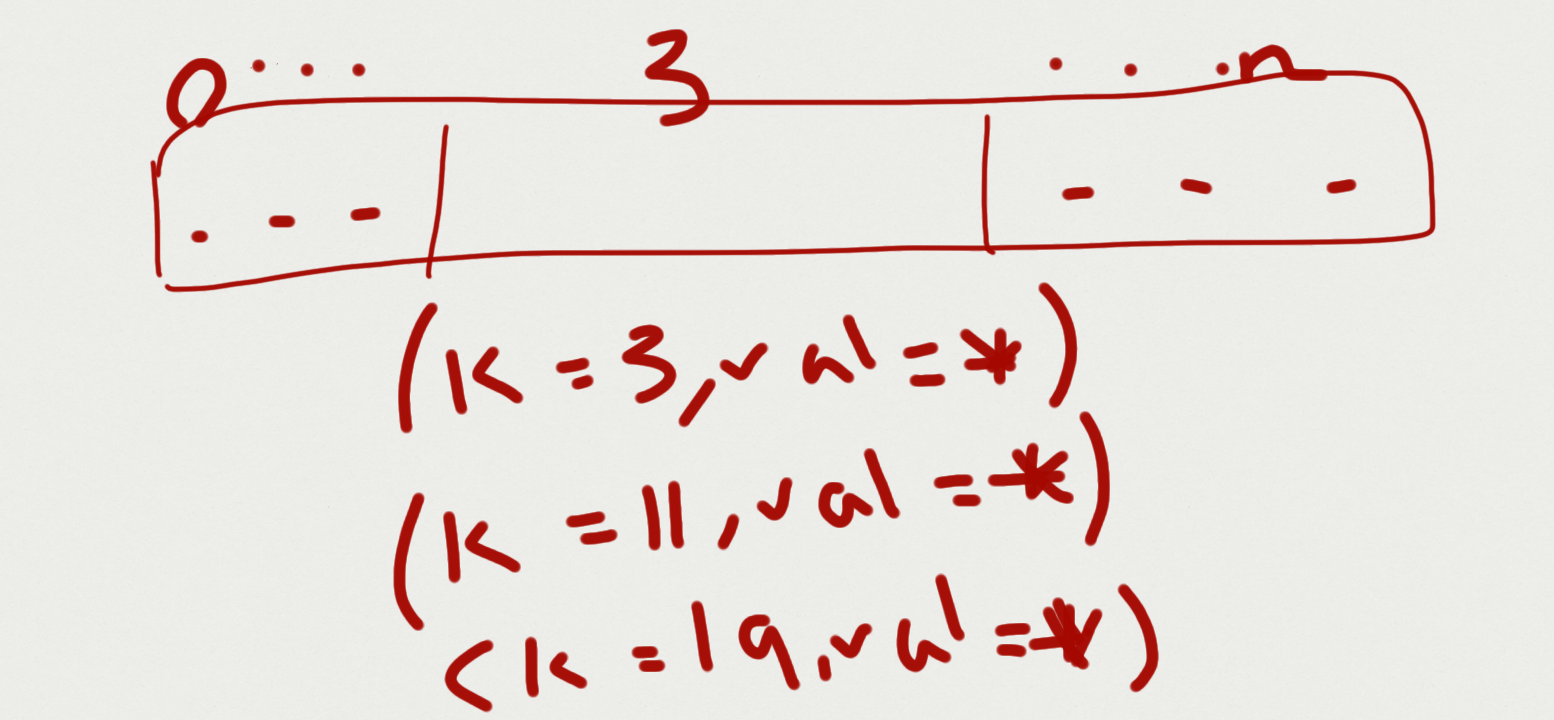 0 . . . 3 . . . n
- - - - - -
(K = 3, val = *)
(K = 11, val = *)
(K = 19, val = *)